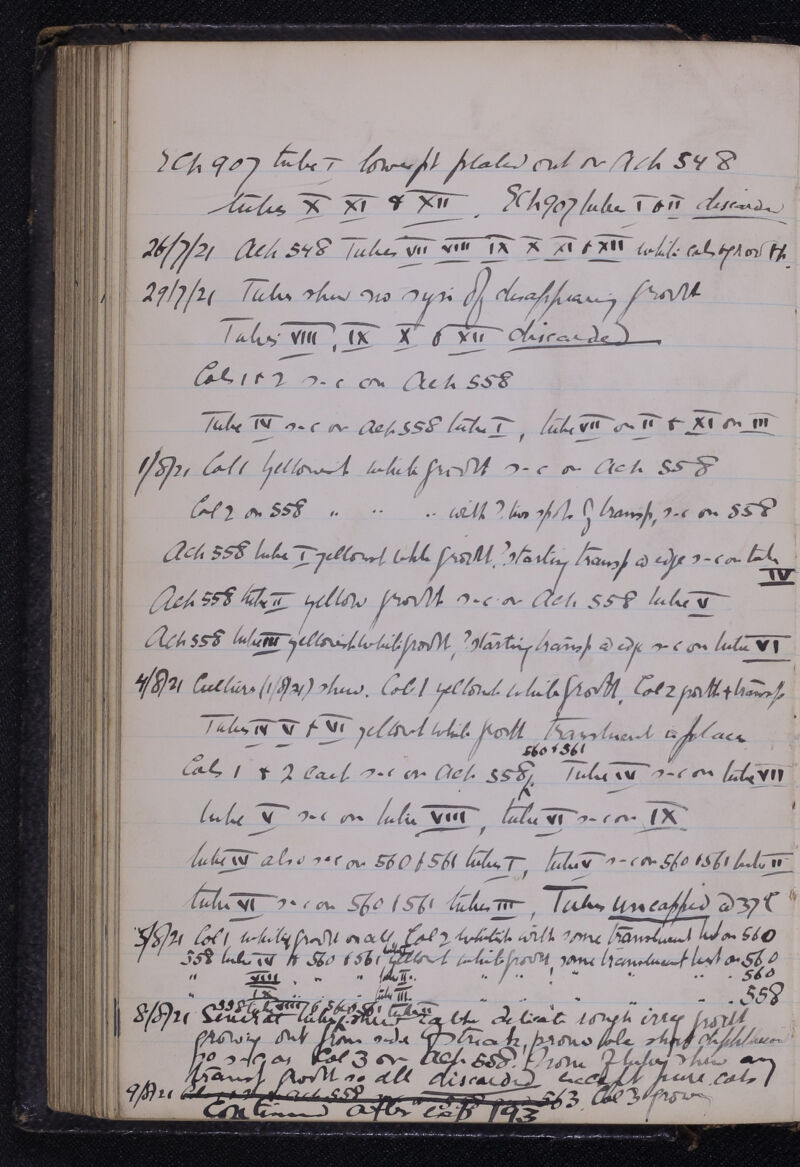 Ech 907 tube I lowest pt plated out on Ach 548
tubes X XI & XII. Ech 907 tube I & II discarded
26/7/21 Ach 548 Tubes VII VIII IX X XI & XII white cols & growth.
29/7/21 Tubes show no sign of disappearing growth
Tubes VIII, IX X & XII discarded
Cols 1 + 2 s-c on Ach 558
Tube IV s-c on Ach 558 tube I, tube VII on II + XI on III
1/8/21 Col 1 yellowish white growth s-c on Ach 558
Col 2 on 558 " " " with ? two spots of transp, s-c on 558
Ach 558 tube I yellowish white growth, ? starting transp @ edge s-c on tube IV
Ach 558 tube II yellow growth s-c on Ach 558 tube V
Ach 558 tube III yellowish white growth, ? starting transp @ edge s-c on tube VI
4/8/21 Cultures (1/8/21) show. Col 1 yellowish white growth, Col 2 growth + transp
Tubes IV V + VI yellowish white growth translucent in places
Cols 1 + 2 each s-c on Ach 558, 560 + 561 Tube IV s-c on tube VII
tube V s-c on tube VIII, tube VI s-c on IX
tube IV also s-c on 560 & 561 tubes I, tube V s-c on 560 & 561 tube II
tube VI s-c on 560 & 561 tubes III, Tubes uncapped @ 37C
5/8/21 Col 1, white growth on all, Col 2 whitish with some translucent best on 560
558 tube IV & 560 & 561 yellowish white growth, some translucent best on 560
" VIII " " tube II " " " " " 560
" IX " " tube III " " " " " 558
8/8/21 Several tubes show rather delicate rough irreg growth
growing out from side of streak, prove to be short diphtheroid
so s-c as Col 3 on Ach 558. None of tubes show any
transp growth so all discarded except pure cols
9/8/21 563. Col 3 grown
Continued after exp 193